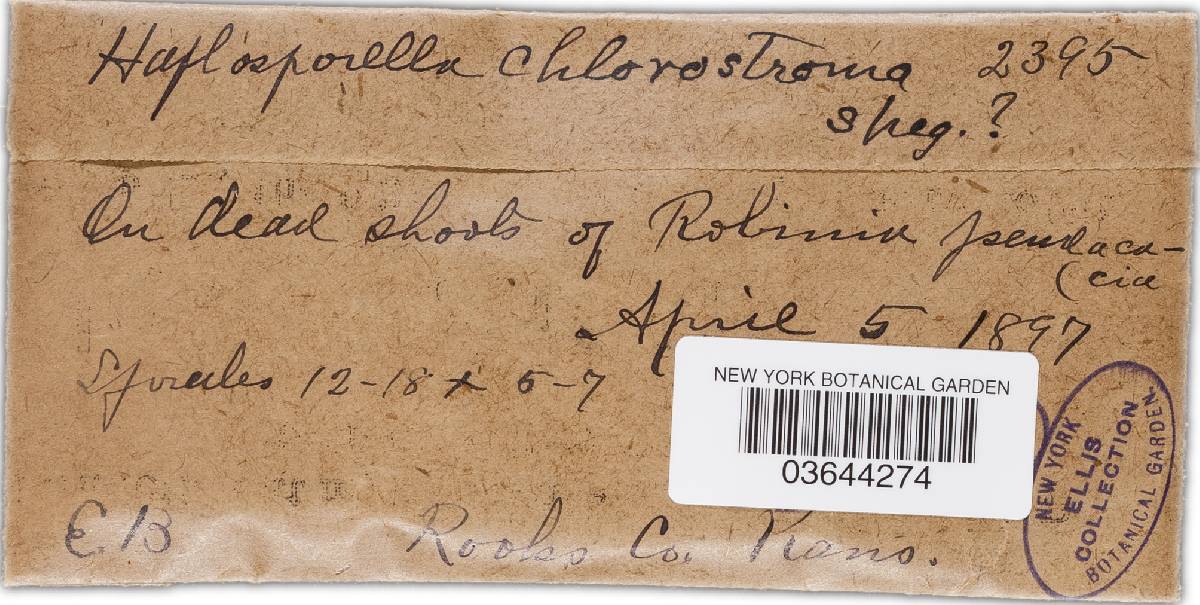 Haplosporella chlorostroma 2395
speg. ?
On dead shoots of Robinia pseudaca-
(cia
April 5 1897
Sporules 12-18 x 5-7
NEW YORK BOTANICAL GARDEN
03644274
NEW YORK
ELLIS
COLLECTION
BOTANICAL GARDEN
E. B Rooks Co. Kans.